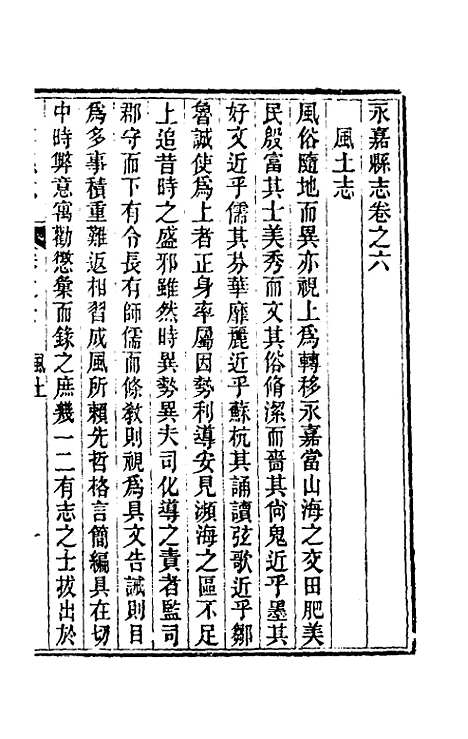 永嘉縣志卷之六
風土志
風俗隨地而異亦視上爲轉移永嘉當山海之交田肥美
民殷富其士美秀而文其俗脩潔而嗇其尙鬼近乎墨其
好文近乎儒其芬華靡麗近乎蘇杭其誦讀弦歌近乎鄒
魯誠使爲上者正身率屬因勢利導安見瀕海之區不足
上追昔時之盛邪雖然時異勢異夫司化導之責者監司
郡守而下有令長有師儒而條教則視爲具文告誡則目
爲多事積重難返相習成風所賴先哲格言簡編具在切
中時弊意寓勸懲彙而錄之庶幾一二有志之士拔出於
風土